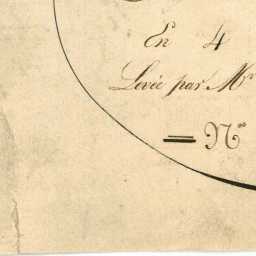 En 4
Levée par Mr
= No